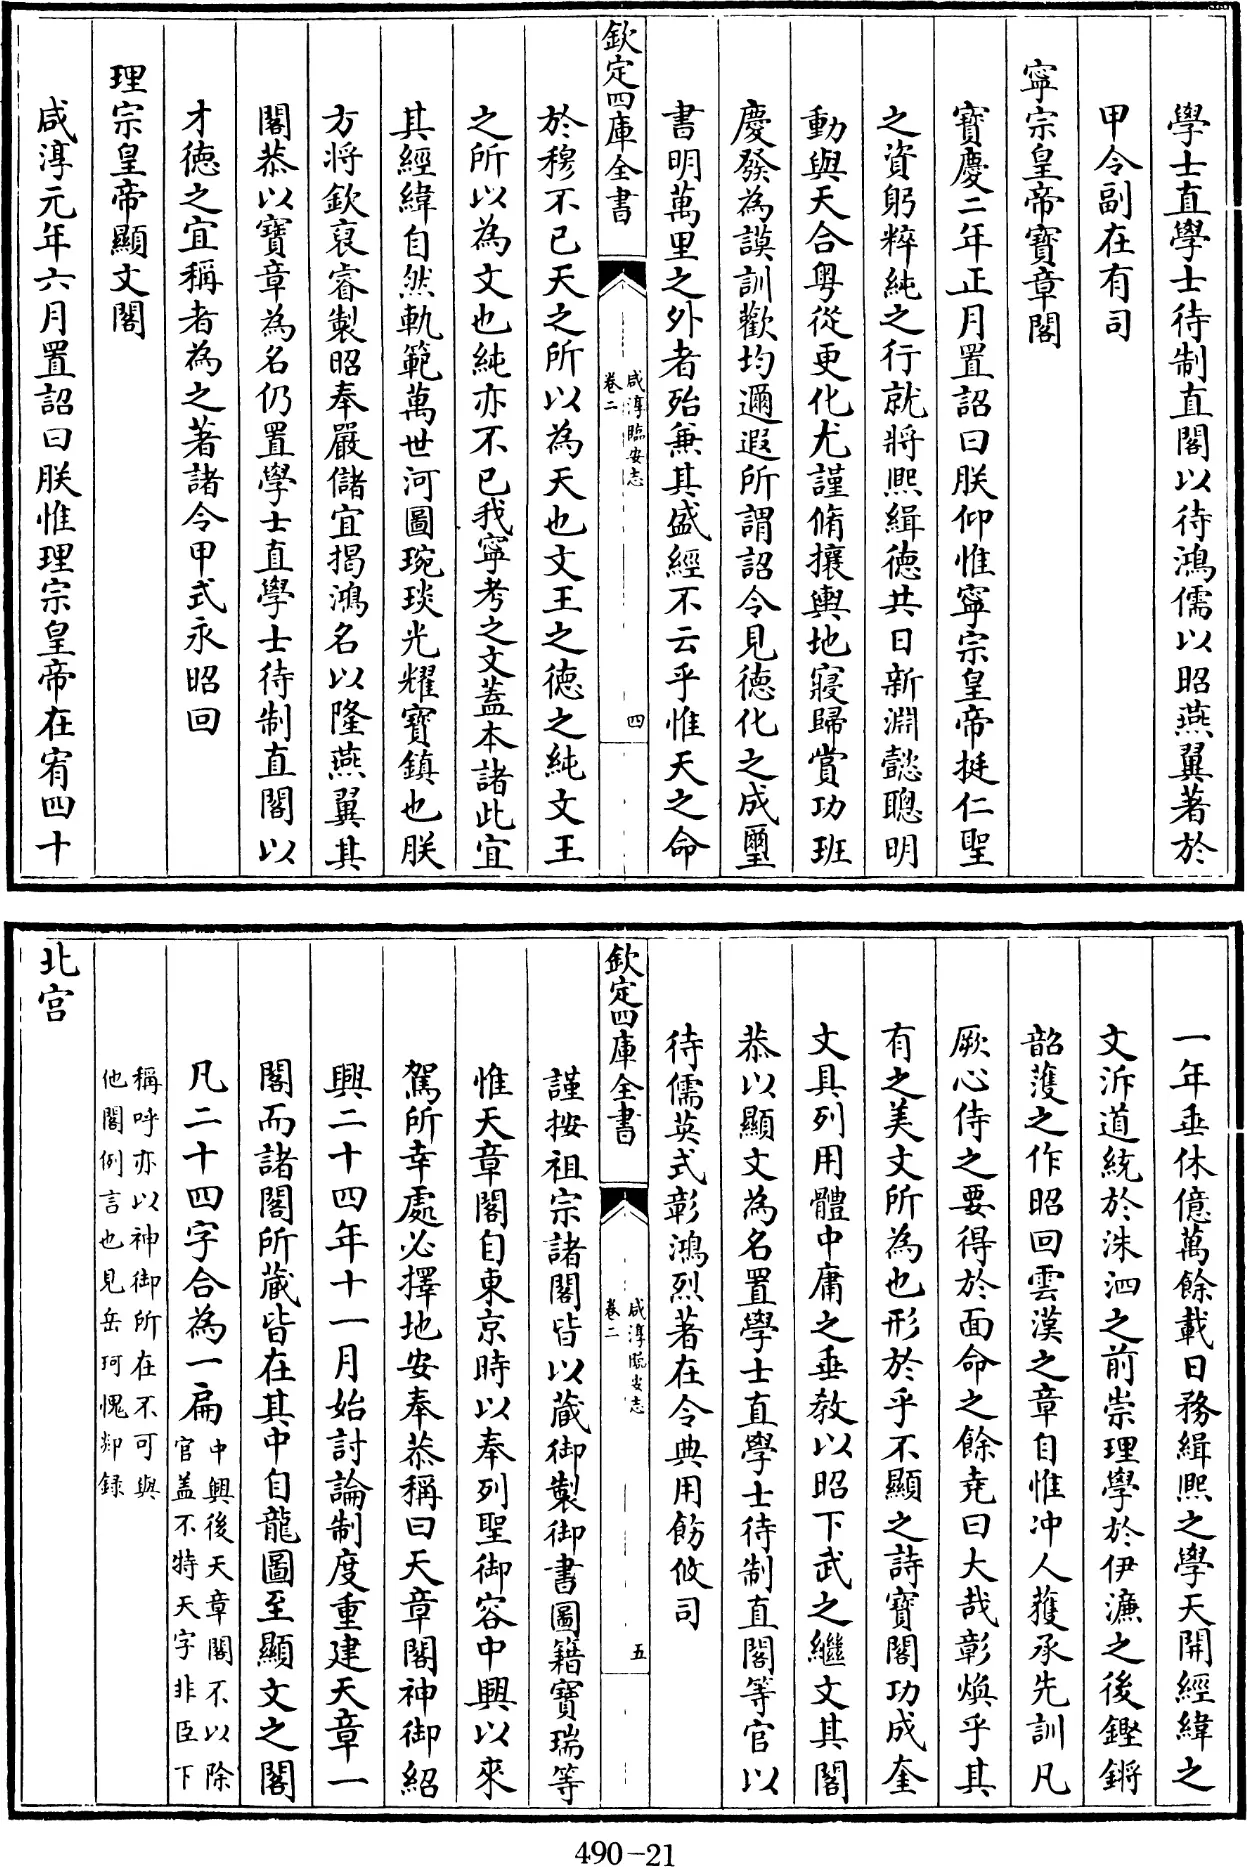 學士直學士待制直閣以待鴻儒以昭燕翼著於
甲令副在有司
寧宗皇帝寶章閣
寶慶二年正月置詔曰朕仰惟寧宗皇帝挺仁聖
之資躬粹純之行就將熙緝德共日新淵懿聰明
動與天合粤從更化尤謹脩攘輿地寖歸賞功班
慶發為謨訓歡均邇遐所謂詔令見德化之成璽
書明萬里之外者殆兼其盛經不云乎惟天之命
欽定四庫全書
咸淳臨安志
卷二
四
於穆不已天之所以為天也文王之德之純文王
之所以為文也純亦不已我寧考之文蓋本諸此宜
其經緯自然軌範萬世河圖琬琰光耀寶鎮也朕
方將欽裒睿製昭奉嚴儲宜揭鴻名以隆燕翼其
閣恭以寶章為名仍置學士直學士待制直閣以
才德之宜稱者為之著諸令甲式永昭回
理宗皇帝顯文閣
咸淳元年六月置詔曰朕惟理宗皇帝在宥四十
一年垂休億萬餘載日務緝熙之學天開經緯之
文泝道統於洙泗之前崇理學於伊濂之後鏗鏘
韶蒦之作昭回雲漢之章自惟冲人獲承先訓凡
厥心侍之要得於面命之餘堯曰大哉彰煥乎其
有之美文所為也形於乎不顯之詩寶閣功成奎
文具列用體中庸之垂教以昭下武之繼文其閣
恭以顯文為名置學士直學士待制直閣等官以
待儒英式彰鴻烈著在令典用飭攸司
欽定四庫全書
咸淳臨安志
卷二
五
謹按祖宗諸閣皆以藏御製御書圖籍寶瑞等
惟天章閣自東京時以奉列聖御容中興以來
駕所幸處必擇地安奉恭稱曰天章閣神御紹
興二十四年十一月始討論制度重建天章一
閣而諸閣所藏皆在其中自龍圖至顯文之閣
凡二十四字合為一扁
中興後天章閣不以除
官蓋不特天字非臣下
稱呼亦以神御所在不可與
他閣例言也見岳珂愧郯録
北宫
490-21